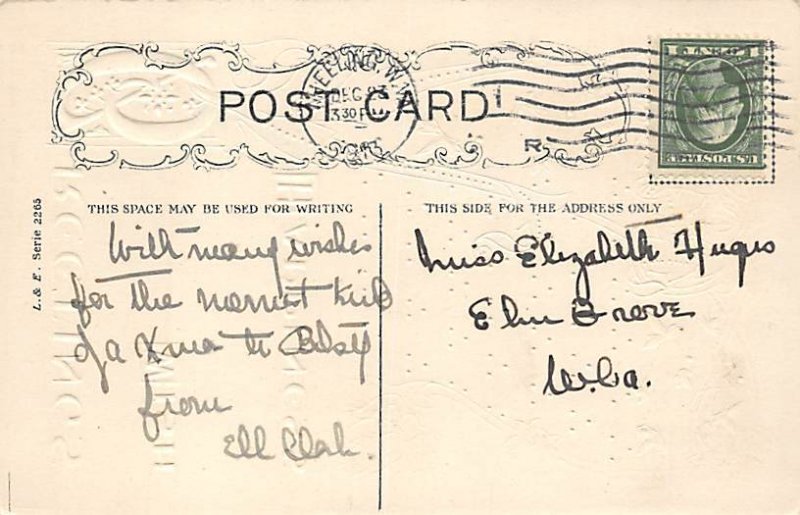 POST CARD
WHEELING, W.
DEC 23
3 30 P
R
1 CENT 1
U.S. POSTAGE
THIS SPACE MAY BE USED FOR WRITING
THIS SIDE FOR THE ADDRESS ONLY
L. & E. Serie 2265
With many wishes
for the kid
of a Xmas to
from
Ell Clark.
Miss Elizabeth Hugus
Elm Grove
W.Va.